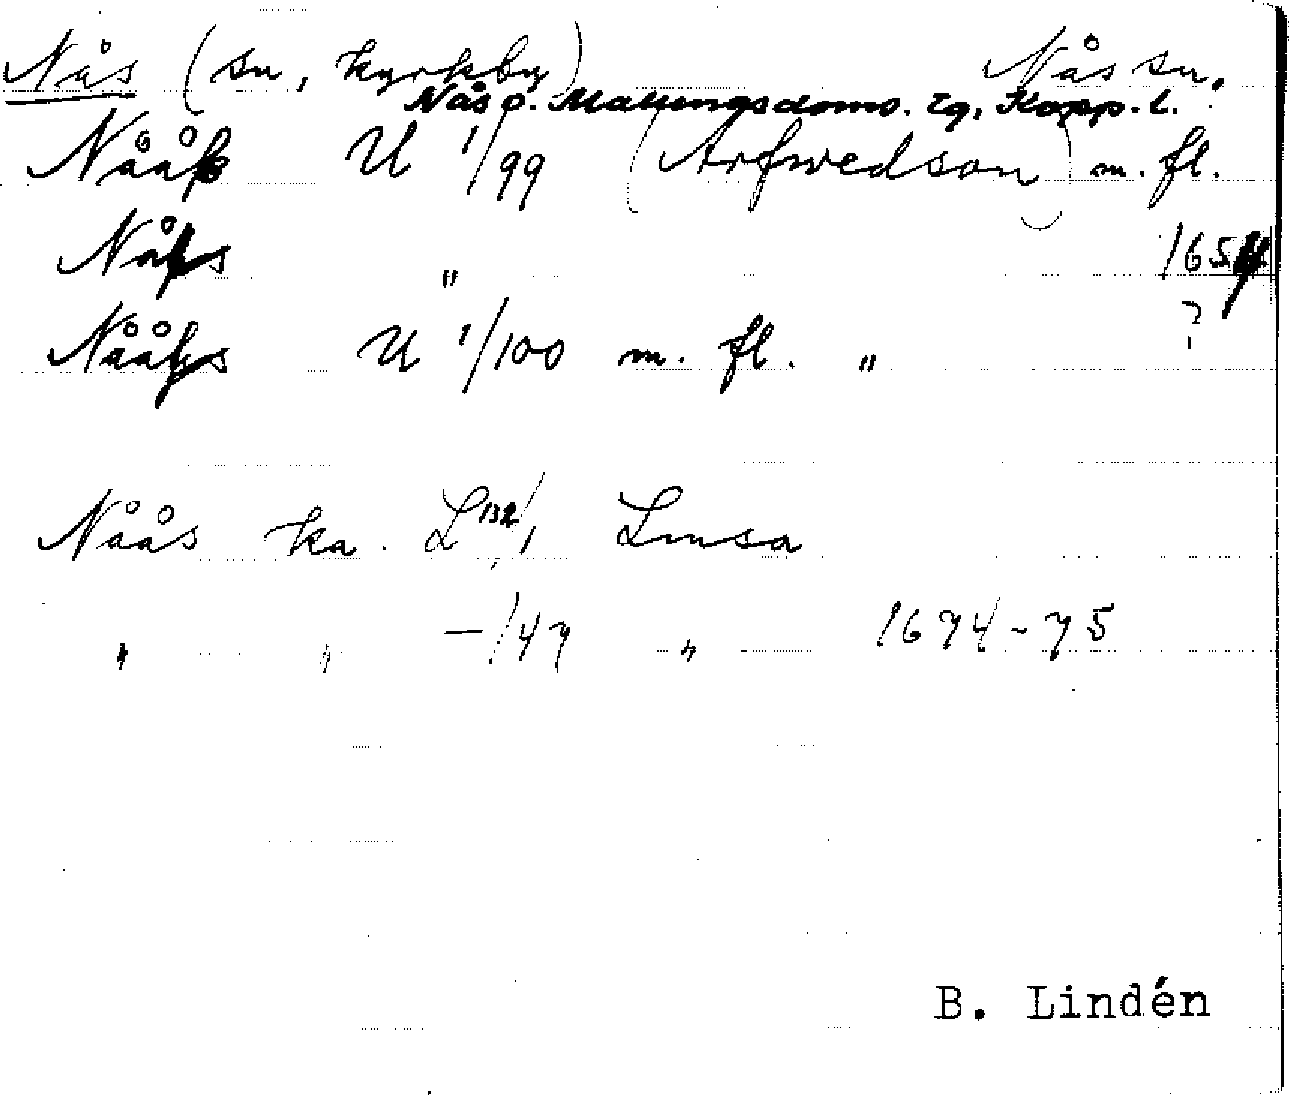 Nås (sn, kyrkby) Nås sn.
Nås o. Malungs doms. tg, Kopp. l.
Nååſs U 1/99 (Arfwedson) m. fl.
Nåſs " 1654
?
Nååſs U 1/100 m. fl. "
Nåås ka. L 132/1 Lmsa
" " —/47 " 1674-75
B. Lindén